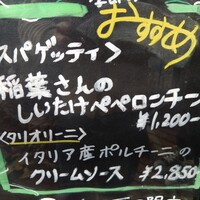 おすすめ
スパゲッティ>
稲葉さんの
しいたけペペロンチーノ
¥1,200-
<タリオリーニ>
イタリア産ポルチーニの
クリームソース ¥2,850-